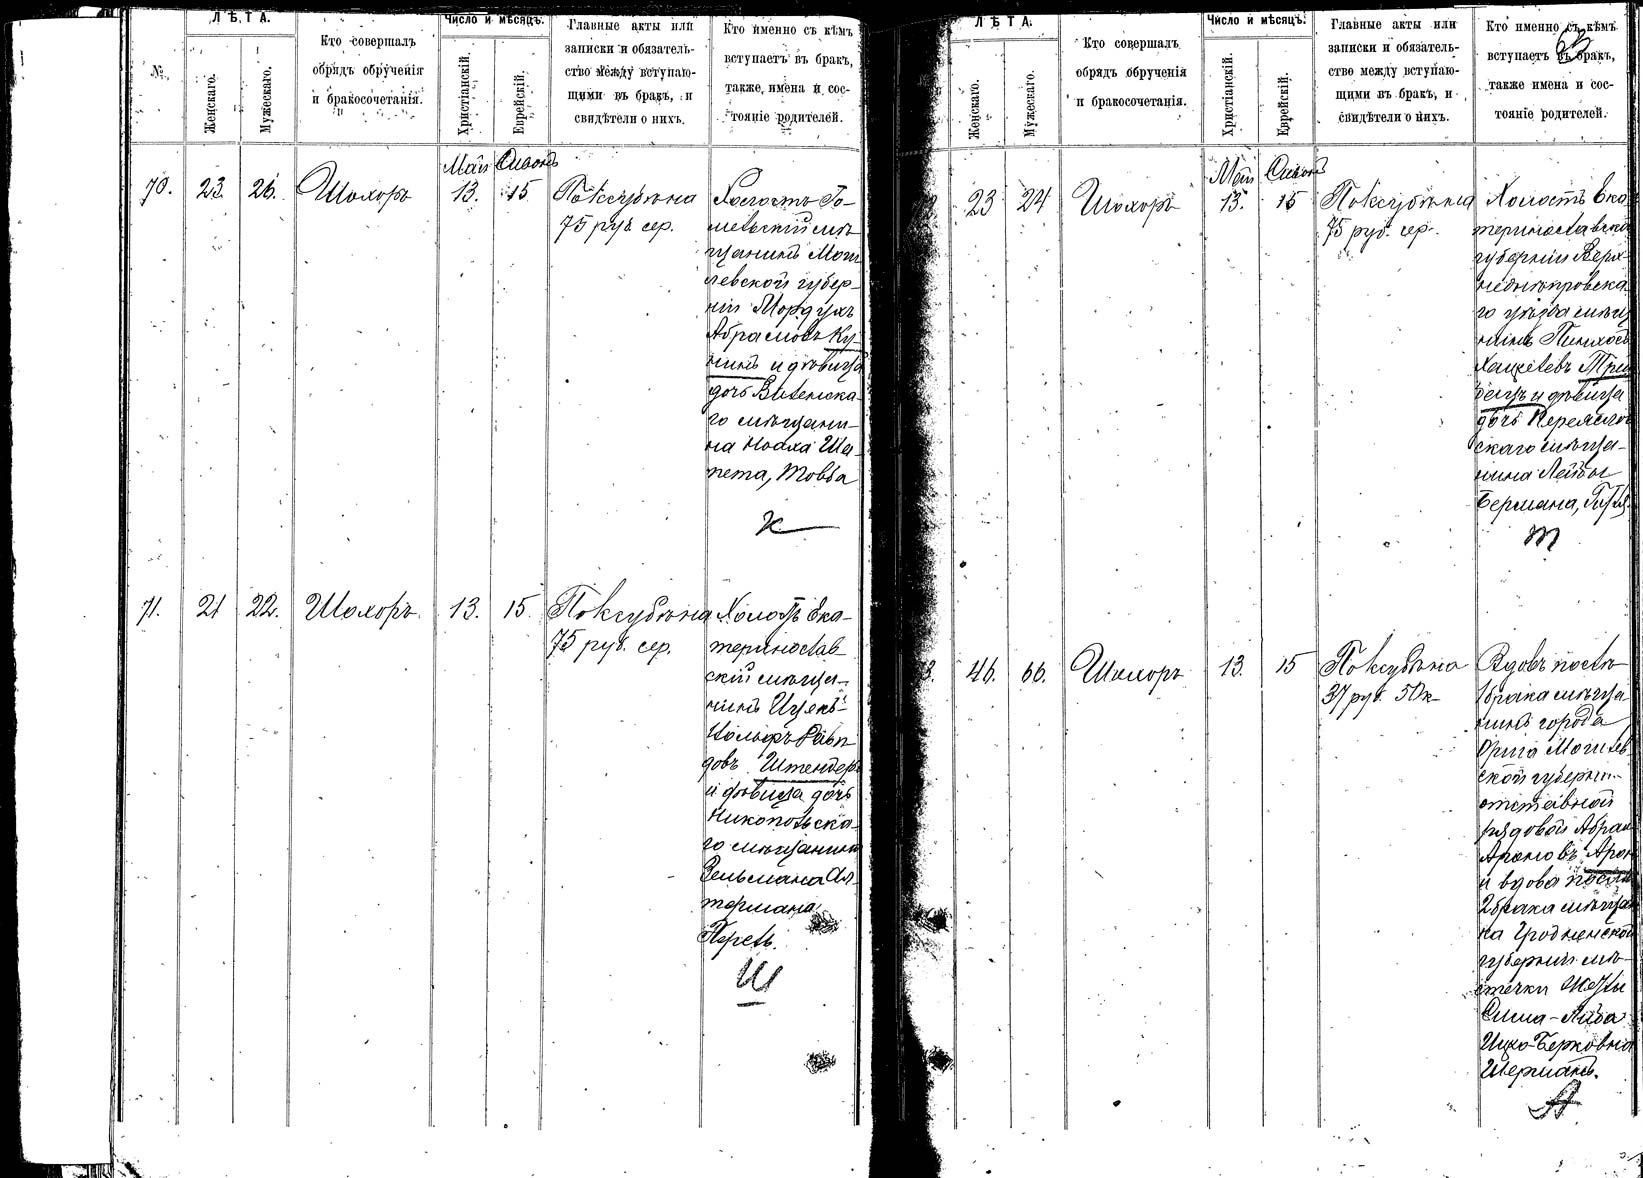 №
ЛѢТА.
Женскаго.
Мужескаго.
Кто совершалъ
обрядъ обрученія
и бракосочетанія.
Число и мѣсяцъ.
Христіанскій.
Еврейскій.
Главные акты или
записки и обязатель-
ство между вступаю-
щими въ бракъ, и
свидѣтели о нихъ.
Кто именно съ кѣмъ
вступаетъ въ бракъ,
также имена и сос-
тояніе родителей.
Май
70.
23.
26.
Шохоръ
13.
15
По ксубѣна
75 руб сер.
Холостъ Го-
мельскій мѣ-
щанинъ Моги
левской губер-
ніи Мордухъ
Абрамовъ Ку-
нинъ и дѣвица
дочь Витебска-
го мѣщани-
на Ноаха Ша-
пета, Товба
К
71.
21
22.
Шохоръ
13.
15
По ксубѣна
75 руб. сер.
Холостъ Ека-
теринослав
скій мѣща-
нинъ Ицекъ-
Вольфъ
довъ Штендеръ
и дѣвица дочь
Никопольска-
го мѣщанина
Зельмана Ал-
термана
Перель.
Ш
ЛѢТА.
Женскаго.
Мужескаго.
Кто совершалъ
обрядъ обрученія
и бракосочетанія.
Число и мѣсяцъ.
Христіанскій.
Еврейскій.
Главные акты или
записки и обязатель-
ство между вступаю-
щими въ бракъ, и
свидѣтели о нихъ.
Кто именно съ кѣмъ
вступаетъ въ бракъ,
также имена и сос-
тояніе родителей.
Май
23
24
Шохоръ
13.
15
По ксубѣна
75 руб. сер.
Холостъ Ека
теринославской
губерніи Верх-
неднѣпровска
го уѣзда мѣща
нинъ Пинхосъ
Хацкелевъ
и дѣвица
дочь Переяслов
скаго мѣща-
нина Лейбы
Бермана,
Т
46.
66.
Шохоръ
13.
15
По ксубѣна
37 руб. 50 к
Вдовъ послѣ
1 брака мѣща-
нинъ города
Орша Могилев
ской губерніи
отставной
рядовой Абрам
Ароновъ Арон
и вдова послѣ
2 брака мѣщан
ка Гродненской
губерніи мѣ-
стечки
Сима-Хайа
Ицко-Берковна
Шерманъ.
А